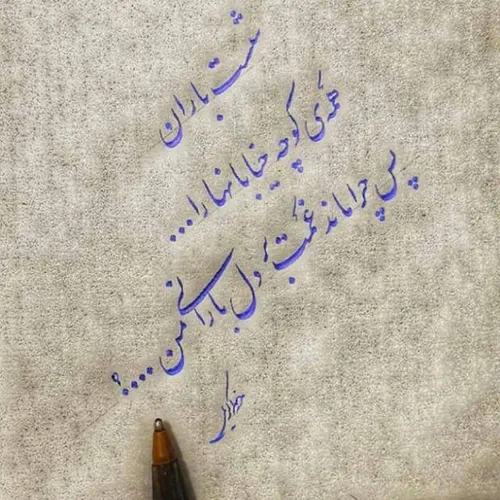 شست باران
همه‌ی کوچه خیابانها را...
پس چرا ماند غمت بر دل بارانی من....؟